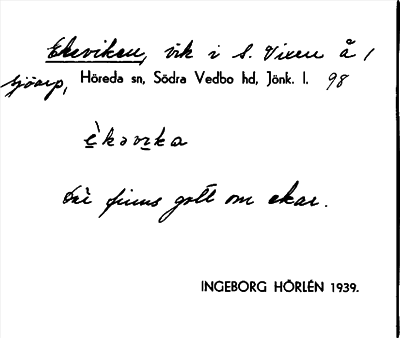 Ekeviken, vik i S. Vixen å 1
sjöarp, Höreda sn, Södra Vedbo hd, Jönk. l. 98
è̱kəvi̱ka
Där finns gott om ekar.
INGEBORG HÖRLÉN 1939.